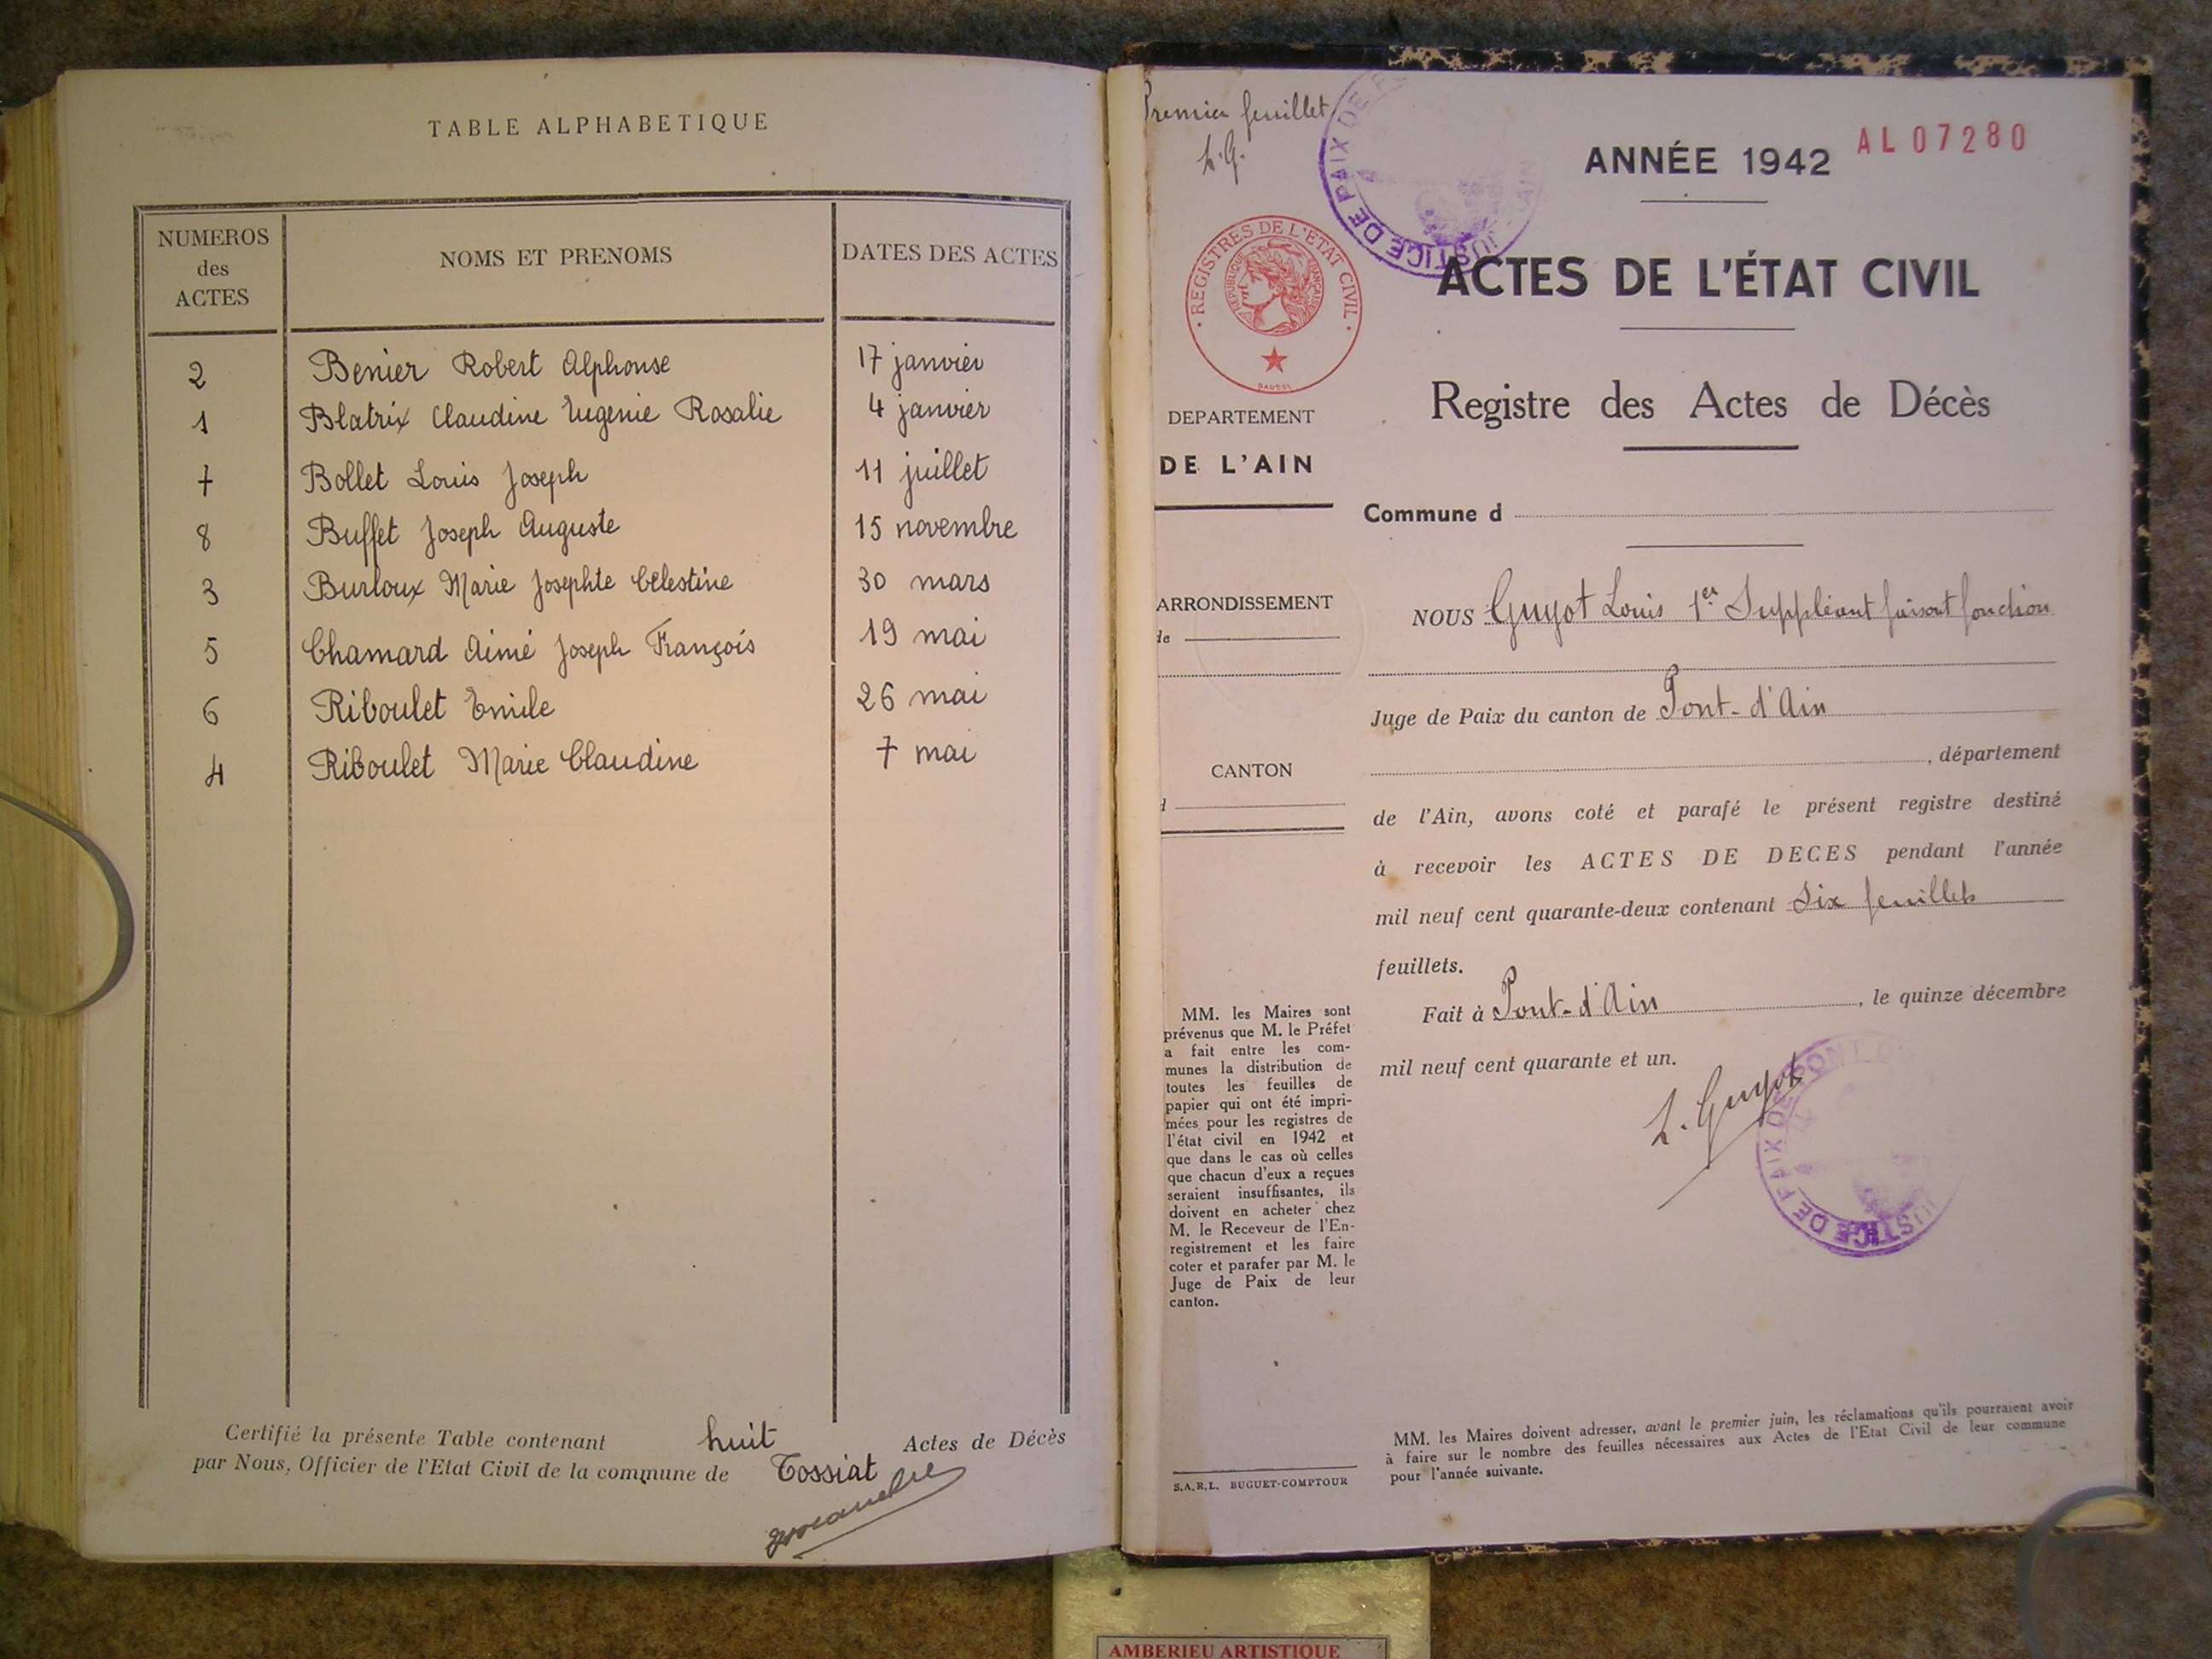 TABLE ALPHABETIQUE
NUMEROS des ACTES
NOMS ET PRENOMS
DATES DES ACTES
2 Benier Robert Alphonse 17 janvier
1 Blatrix Claudine Eugenie Rosalie 4 janvier
7 Bollet Louis Joseph 11 juillet
8 Buffet Joseph Auguste 15 novembre
3 Burloux Marie Josephte Célestine 30 mars
5 Chamard Aimé Joseph François 19 mai
6 Riboulet Emile 26 mai
4 Riboulet Marie Claudine 7 mai
Certifié la présente Table contenant huit Actes de Décès
par Nous, Officier de l'Etat Civil de la commune de Tossiat
Premier feuillet
L.G.
JUSTICE DE PAIX DE
AIN
ANNÉE 1942
AL07280
REGISTRES DE L'ETAT CIVIL
REPUBLIQUE FRANÇAISE
ACTES DE L'ÉTAT CIVIL
Registre des Actes de Décès
DEPARTEMENT
DE L'AIN
ARRONDISSEMENT
de
CANTON
d
MM. les Maires sont
prévenus que M. le Préfet
a fait entre les com-
munes la distribution de
toutes les feuilles de
papier qui ont été impri-
mées pour les registres de
l'état civil en 1942 et
que dans le cas où celles
que chacun d'eux a reçues
seraient insuffisantes, ils
doivent en acheter chez
M. le Receveur de l'En-
registrement et les faire
coter et parafer par M. le
Juge de Paix de leur
canton.
S.A.R.L. BUGUET-COMPTOUR
Commune d
NOUS Guyot Louis 1er Suppléant faisant fonction
Juge de Paix du canton de Pont-d'Ain
, département
de l'Ain, avons coté et parafé le présent registre destiné
à recevoir les ACTES DE DECES pendant l'année
mil neuf cent quarante-deux contenant Six feuillets
feuillets.
Fait à Pont-d'Ain, le quinze décembre
mil neuf cent quarante et un.
L. Guyot
JUSTICE DE PAIX DE PONT D
MM. les Maires doivent adresser, avant le premier juin, les réclamations qu'ils pourraient avoir
à faire sur le nombre des feuilles nécessaires aux Actes de l'Etat Civil de leur commune
pour l'année suivante.
AMBERIEU ARTISTIQUE